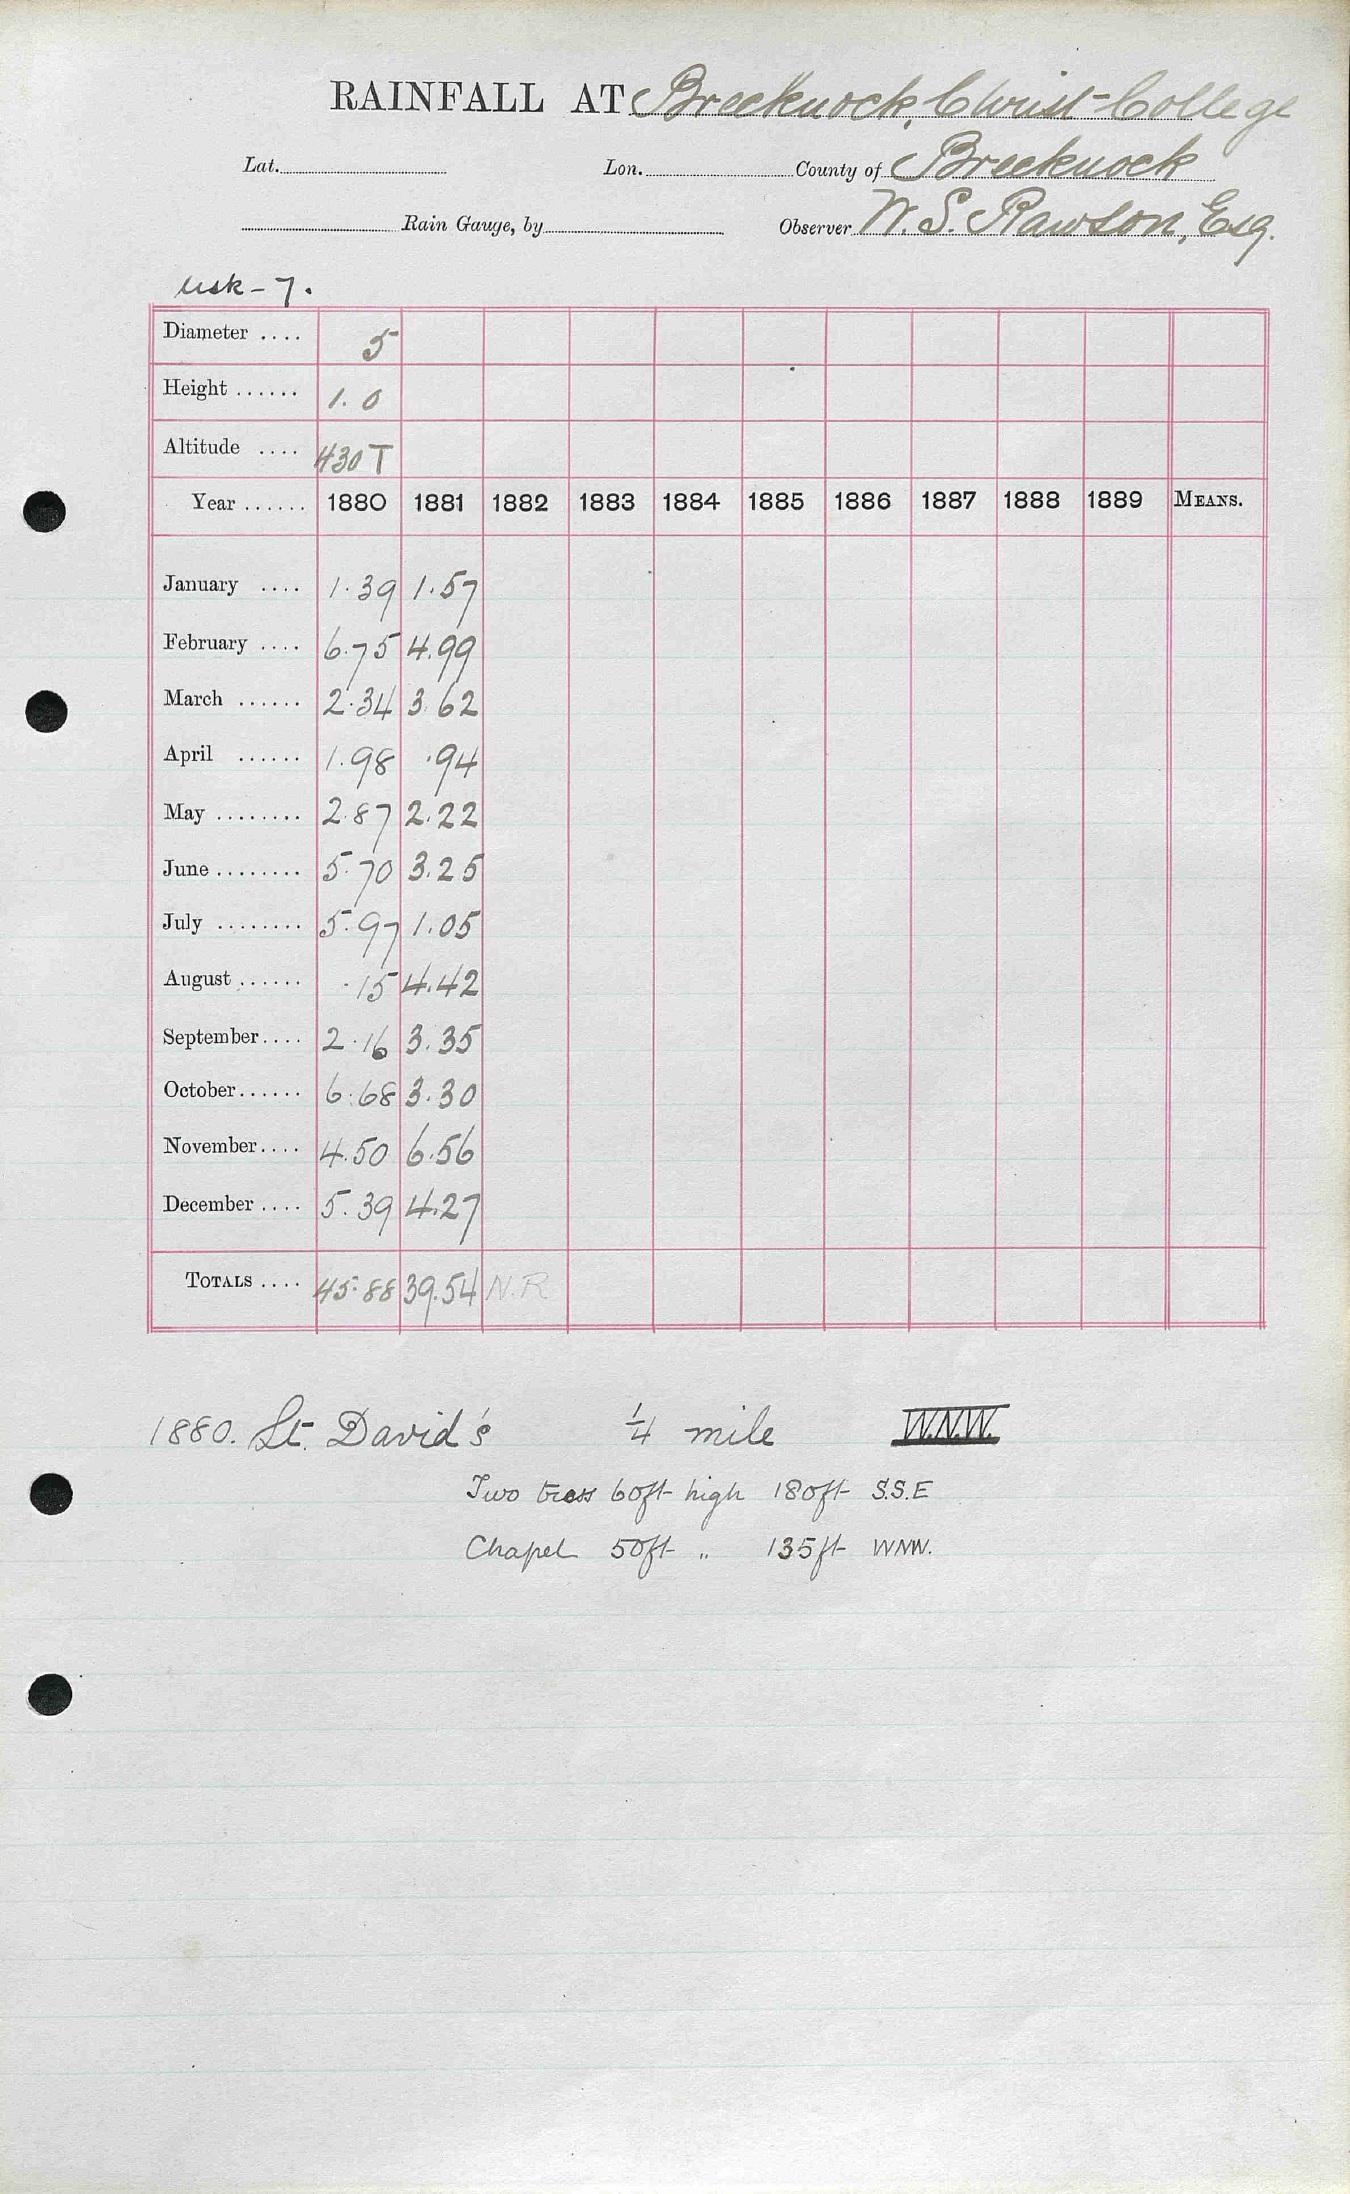 RAINFALL AT Brecknock, Christ College
Lat. Lon. County of Brecknock
Rain Gauge, by Observer W. S. Rawson, Esq.
Usk - 7.
Diameter .... 5
Height ...... 1.0
Altitude .... 430 T
Year ...... 1880 1881 1882 1883 1884 1885 1886 1887 1888 1889 MEANS.
January .... 1.39 1.57
February .... 6.75 4.99
March ...... 2.34 3.62
April ...... 1.98 .94
May ........ 2.87 2.22
June ........ 5.70 3.25
July ........ 5.97 1.05
August ...... .15 4.42
September .... 2.16 3.35
October ...... 6.68 3.30
November .... 4.50 6.56
December .... 5.39 4.27
TOTALS .... 45.88 39.54 N.R
1880. St. David's 1/4 mile W.N.W.
Two trees 60ft high 180ft S.S.E
Chapel 50ft " 135ft WNW.